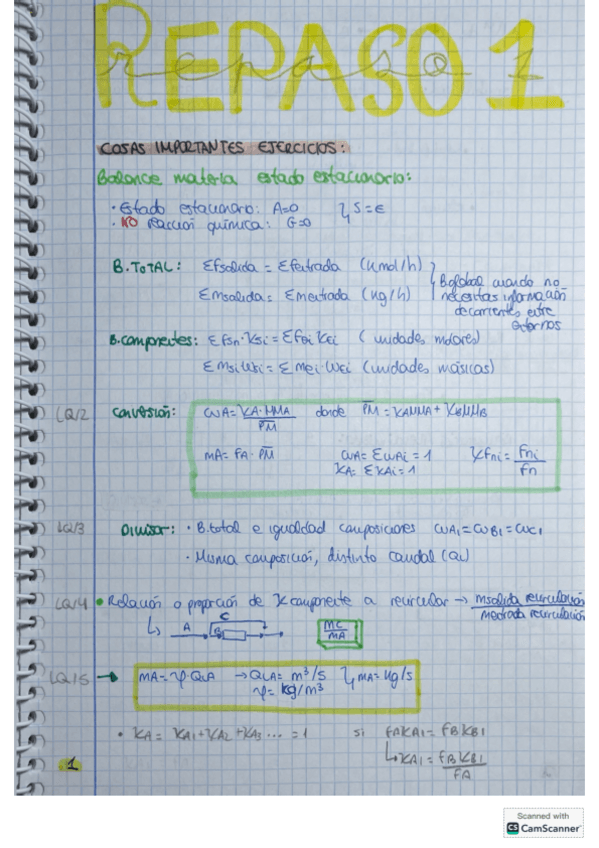 REPASO 1
repaso
COSAS IMPORTANTES EJERCICIOS:
Balance materia estado estacionario:
· Estado estacionario: A=0 } S=E
· NO reacción química: G=0
B.TOTAL: Σfsalida = Σfentrada (kmol/h)
Σmsalida = Σmentrada (kg/h)
B.global cuando no
necesitas información
de corrientes entre
externos
B.componentes: Σfsn·xsi = Σfei xei ( unidades molares)
Σmsi wsi = Σmei·wei (unidades másicas)
LQ/2 Conversión: wA = xA·MMA / PM donde PM = xAMMA + xBMMB
mA = fA·PM wA = ΣwAi = 1 xfni = fni / fn
xA = ΣxAi = 1
LQ/3 Divisor: · B.total e igualdad composiciones wA1 = wB1 = wC1
· Misma composición, distinto caudal (Q)
LQ/4 · Relación o proporción de x componente a recircular → msalida recirculación / mentrada recirculación
A B C MC / MA
LQ/5 → mA = φ·QLA → QLA = m³/s } mA = kg/s
φ = kg/m³
· xA = xA1 + xA2 + xA3 ... = 1 si fAxA1 = fBxB1
↳ xA1 = fBxB1 / fA
1
Scanned with
CS CamScanner